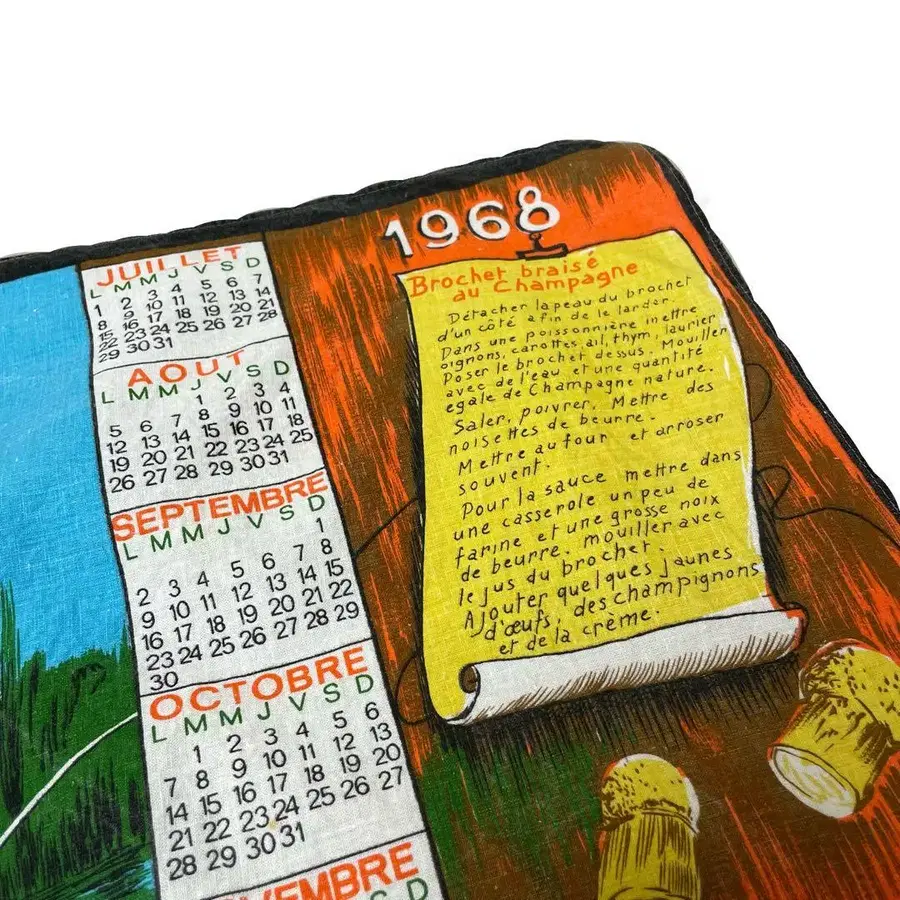 1968
JUILLET
L M M J V S D
1 2 3 4 5 6 7
8 9 10 11 12 13 14
15 16 17 18 19 20 21
22 23 24 25 26 27 28
29 30 31
AOUT
L M M J V S D
1 2 3 4
5 6 7 8 9 10 11
12 13 14 15 16 17 18
19 20 21 22 23 24 25
26 27 28 29 30 31
SEPTEMBRE
L M M J V S D
1
2 3 4 5 6 7 8
9 10 11 12 13 14 15
16 17 18 19 20 21 22
23 24 25 26 27 28 29
30
OCTOBRE
L M M J V S D
1 2 3 4 5 6
7 8 9 10 11 12 13
14 15 16 17 18 19 20
21 22 23 24 25 26 27
28 29 30 31
VEMBRE
S D
Brochet braisé
au Champagne
Détacher la peau du brochet
d'un côté afin de le larder.
Dans une poissonnière mettre
oignons, carottes, ail, thym, laurier.
Poser le brochet dessus. Mouiller
avec de l'eau et une quantité
egale de Champagne nature.
Saler, poivrer. Mettre des
noisettes de beurre.
Mettre au four et arroser
souvent.
Pour la sauce mettre dans
une casserole un peu de
farine et une grosse noix
de beurre. mouiller avec
le jus du brochet.
Ajouter quelques jaunes
d'œufs, des champignons
et de la crème.